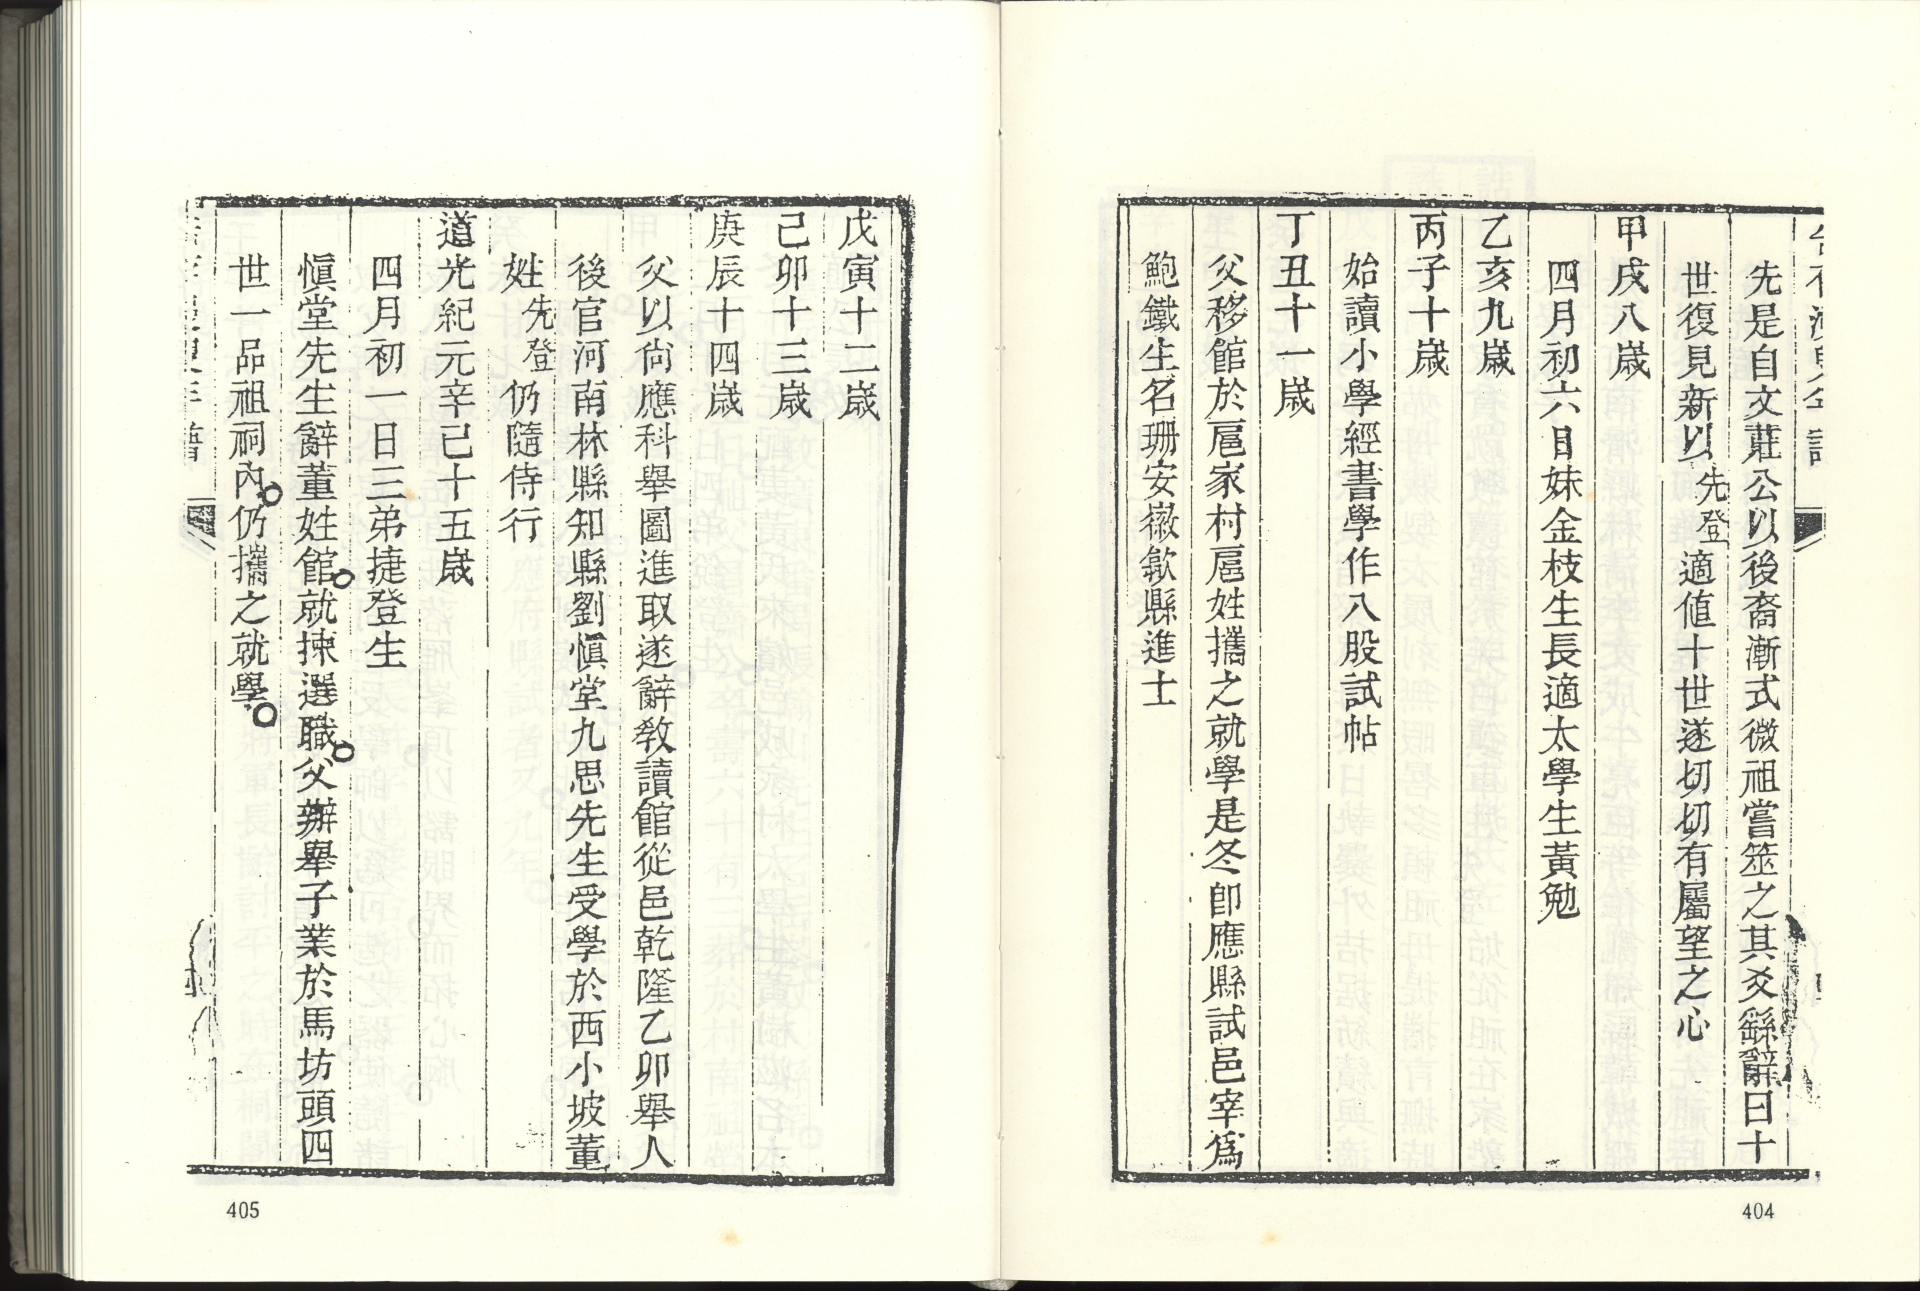 先是自文莊公以後裔漸式微祖嘗筮之其爻繇辭曰十
世復見新以先登適値十世遂切切有屬望之心
甲戌八歲
四月初六日妹金枝生長適太學生黃勉
乙亥九歲
丙子十歲
始讀小學經書學作八股試帖
丁丑十一歲
父移館於扈家村扈姓攜之就學是冬卽應縣試邑宰爲
鮑鐵生名珊安徽歙縣進士
404
戊寅十二歲
己卯十三歲
庚辰十四歲
父以尙應科舉圖進取遂辭教讀館從邑乾隆乙卯舉人
後官河南林縣知縣劉愼堂九思先生受學於西小坡董
姓先登仍隨侍行
道光紀元辛己十五歲
四月初一日三弟捷登生
愼堂先生辭董姓館就揀選職父辦舉子業於馬坊頭四
世一品祖祠內仍攜之就學
405